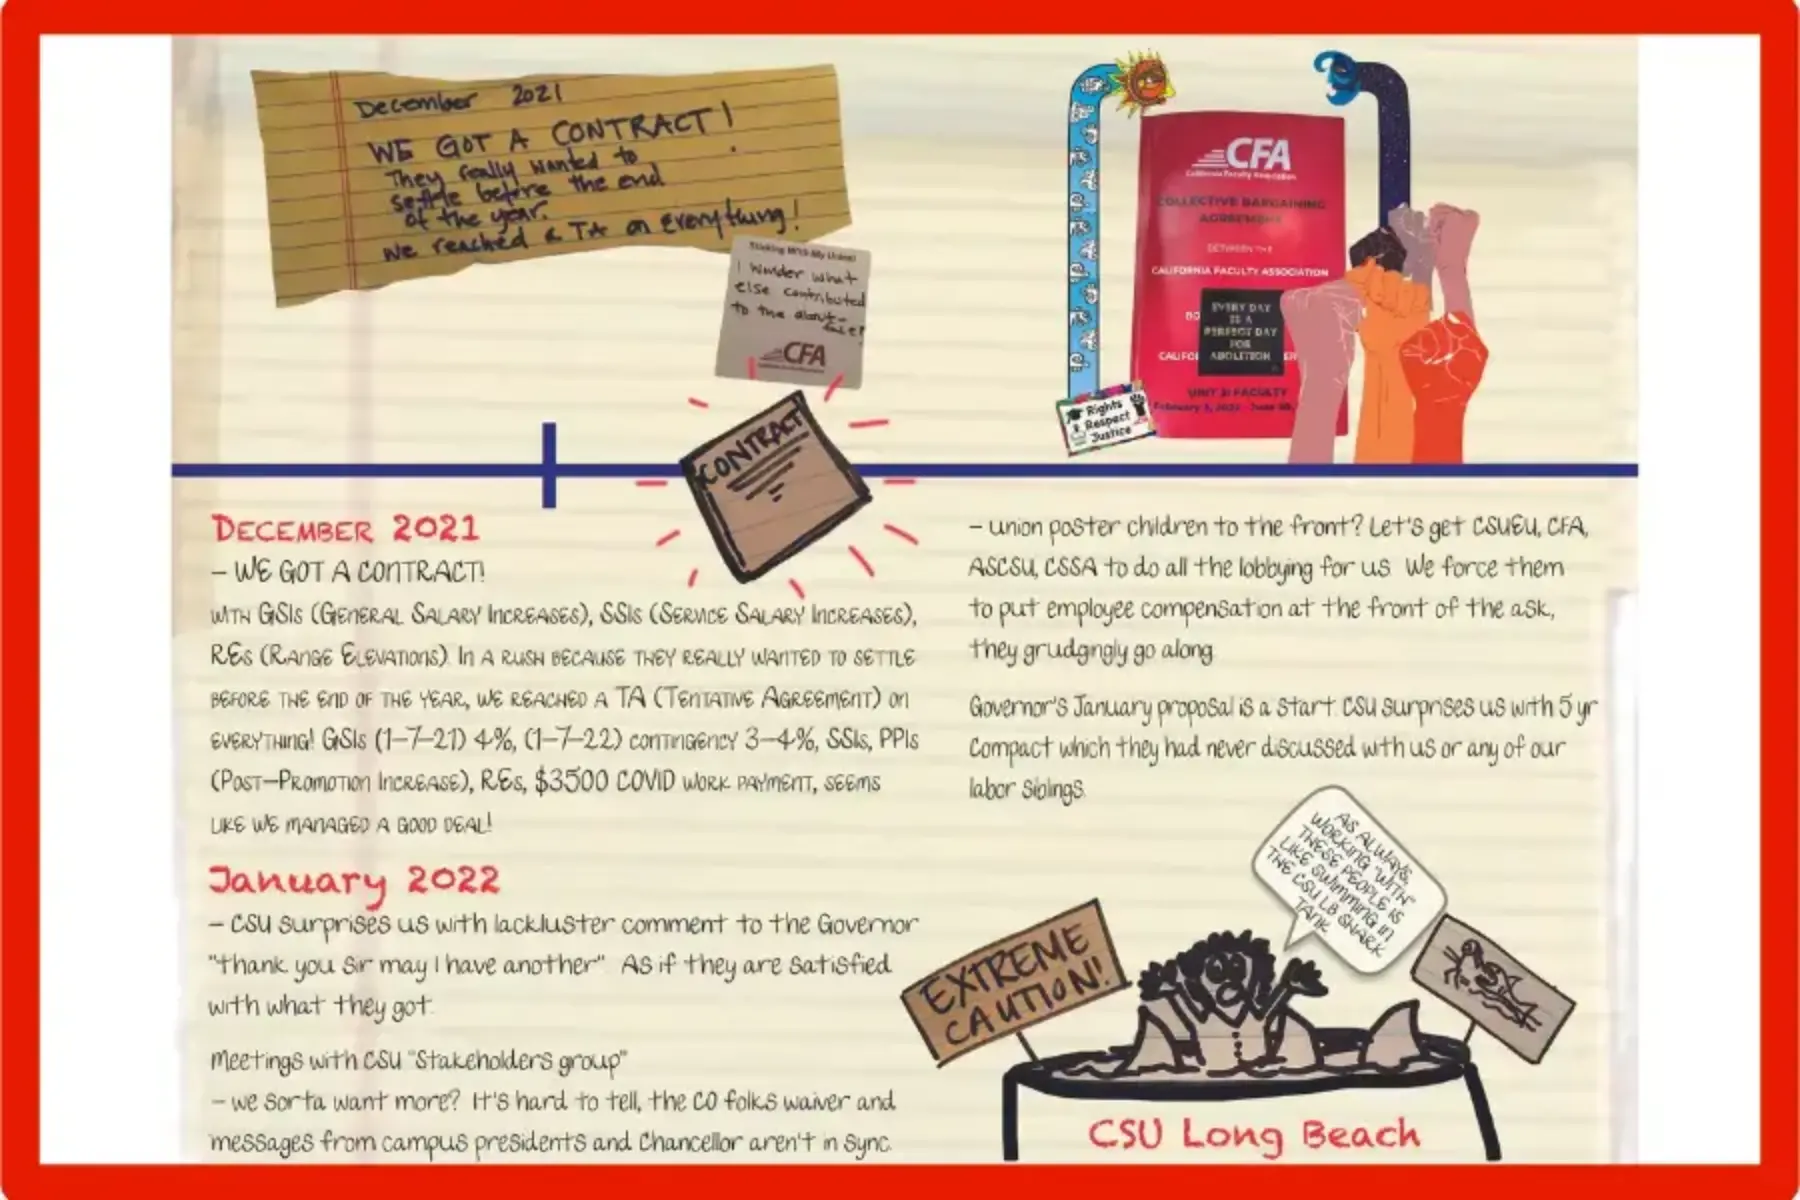 December 2021
WE GOT A CONTRACT!
They really wanted to
settle before the end
of the year.
We reached a TA on everything!
Sticking With My Union!
I wonder what
else contributed
to the about-
face?
CFA
CONTRACT
CFA
California Faculty Association
COLLECTIVE BARGAINING
AGREEMENT
BETWEEN THE
CALIFORNIA FACULTY ASSOCIATION
BO
EVERY DAY
IS A
PERFECT DAY
FOR
ABOLITION
CALIFO
ER
UNIT 3: FACULTY
Rights
Respect
Justice
DECEMBER 2021
– WE GOT A CONTRACT!
WITH GSIS (GENERAL SALARY INCREASES), SSIS (SERVICE SALARY INCREASES),
RES (RANGE ELEVATIONS). IN A RUSH BECAUSE THEY REALLY WANTED TO SETTLE
BEFORE THE END OF THE YEAR, WE REACHED A TA (TENTATIVE AGREEMENT) ON
EVERYTHING! GSIS (1-7-21) 4%, (1-7-22) CONTINGENCY 3-4%, SSIS, PPIS
(POST-PROMOTION INCREASE), RES, $3500 COVID WORK PAYMENT, SEEMS
LIKE WE MANAGED A GOOD DEAL!
January 2022
– CSU surprises us with lackluster comment to the Governor
"thank you sir may I have another". As if they are satisfied
with what they got.
Meetings with CSU "Stakeholders group"
– we sorta want more? It's hard to tell, the CO folks waiver and
messages from campus presidents and Chancellor aren't in sync.
– union poster children to the front? Let's get CSUEU, CFA,
ASCSU, CSSA to do all the lobbying for us. We force them
to put employee compensation at the front of the ask,
they grudgingly go along.
Governor's January proposal is a start. CSU surprises us with 5 yr
Compact which they had never discussed with us or any of our
labor siblings.
AS ALWAYS,
WORKING "WITH"
THESE PEOPLE IS
LIKE SWIMMING IN
THE CSU LB SHARK
TANK
EXTREME
CAUTION!
CSU Long Beach